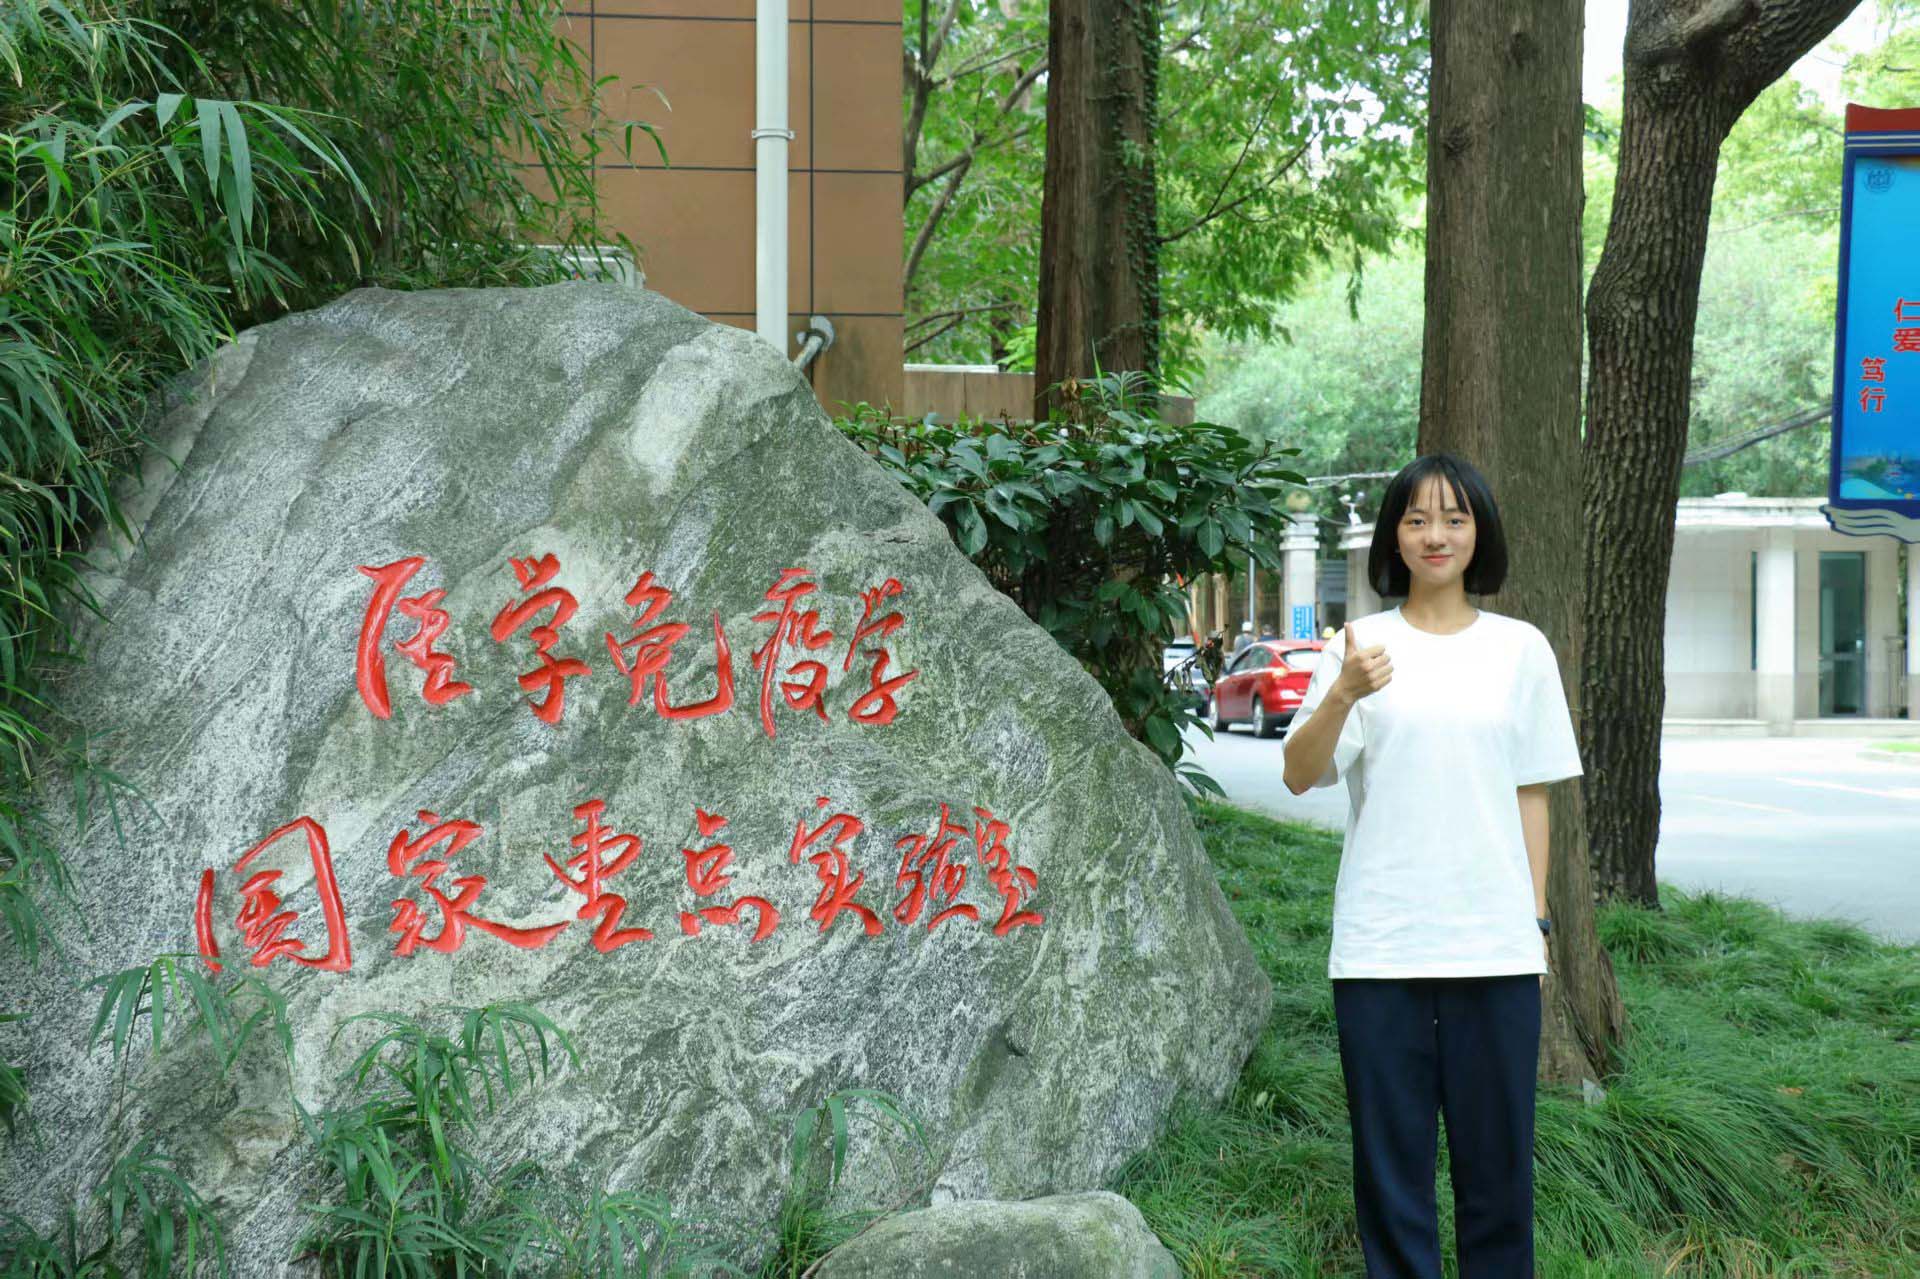 医学免疫学
国家重点实验室
仁爱
笃行